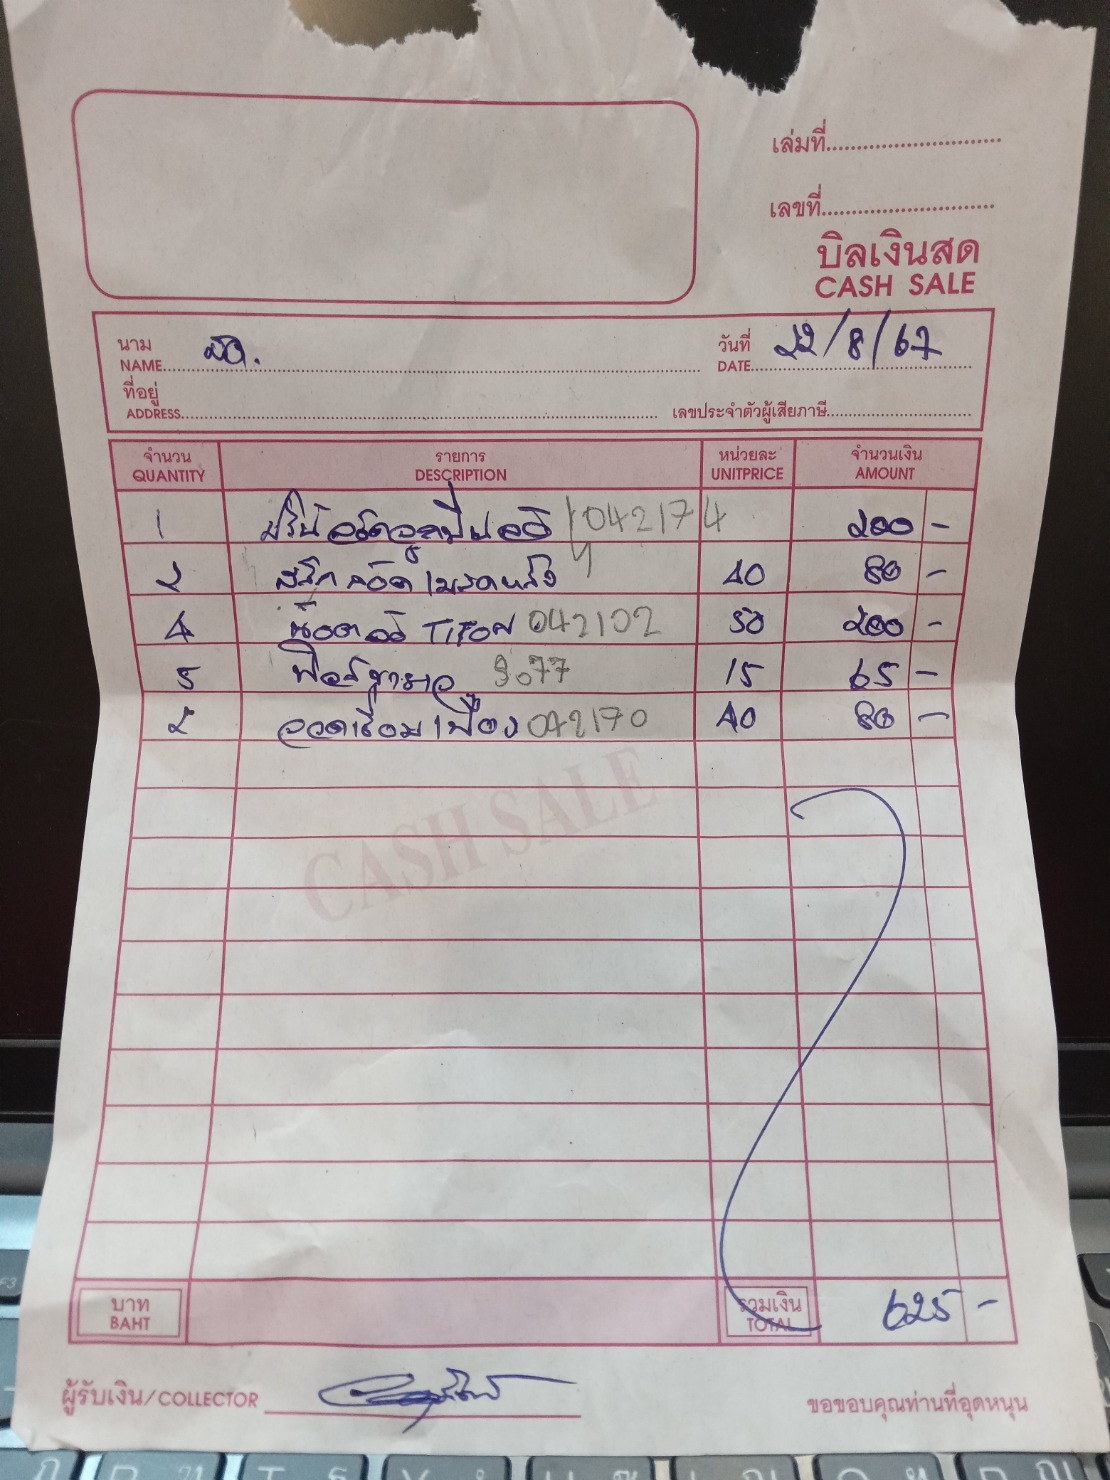 เล่มที่
เลขที่
บิลเงินสด
CASH SALE
นาม
NAME
วันที่ 22/8/67
DATE
ที่อยู่
ADDRESS
เลขประจำตัวผู้เสียภาษี
จำนวน รายการ หน่วยละ จำนวนเงิน
QUANTITY DESCRIPTION UNITPRICE AMOUNT
1 042174 200 -
2 40 80 -
4 TITON 042102 50 200 -
5 9077 15 65 -
2 ลวดเชื่อม 042170 40 80 -
CASH SALE
บาท รวมเงิน 625 -
BAHT TOTAL
ผู้รับเงิน/COLLECTOR
ขอขอบคุณท่านที่อุดหนุน